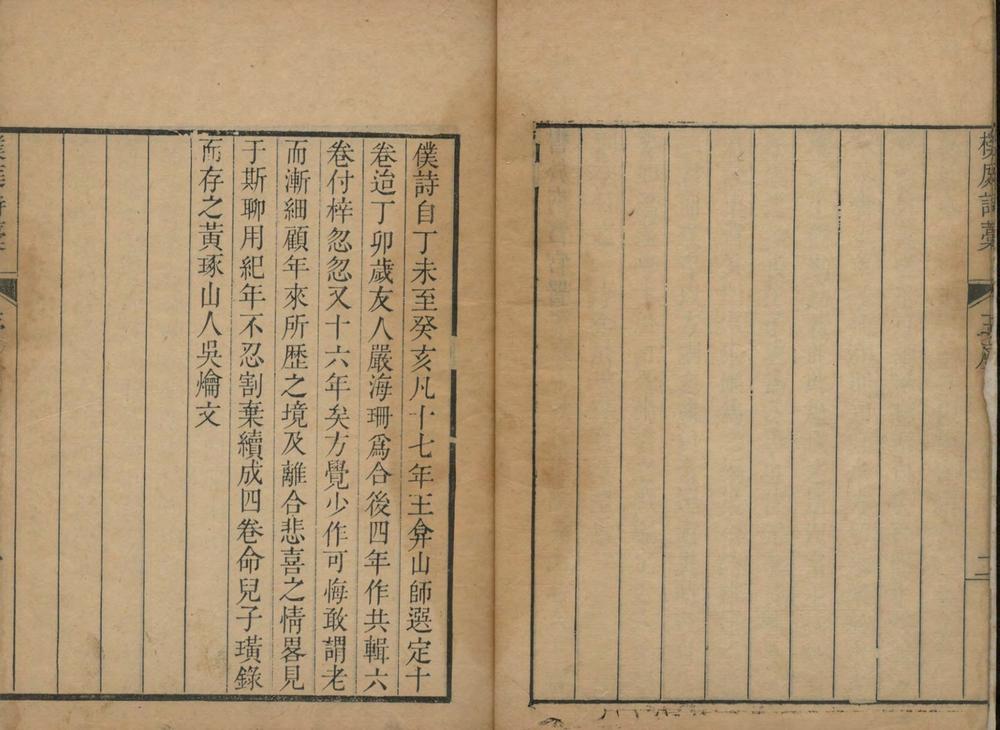 樸庭詩藁
二
僕詩自丁未至癸亥凡十七年王弇山師選定十
卷迨丁卯歲友人嚴海珊爲合後四年作共輯六
卷付梓忽忽又十六年矣方覺少作可悔敢謂老
而漸細顧年來所歷之境及離合悲喜之情畧見
于斯聊用紀年不忍割棄續成四卷命兒子璜錄
而存之黃琢山人吳爚文